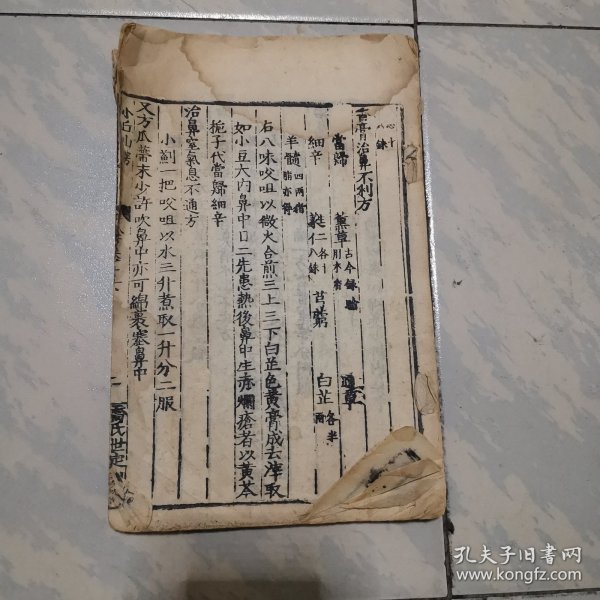 香膏治鼻不利方
當歸 薰草古今錄驗用木香 通草
細辛 蕤仁各十八銖 芎藭 白芷各半兩
羊髓四兩猪脂亦得
右八味咬咀以微火合煎三上三下白芷色黄膏成去滓取
如小豆大内鼻中日二先患熱後鼻中生赤爛瘡者以黄芩
梔子代當歸細辛
治鼻窒氣息不通方
小薊一把咬咀以水三升煮取一升分二服
又方瓜蒂末少許吹鼻中亦可綿裹塞鼻中
喬氏世
孔夫子旧书网
www.kongfz.com